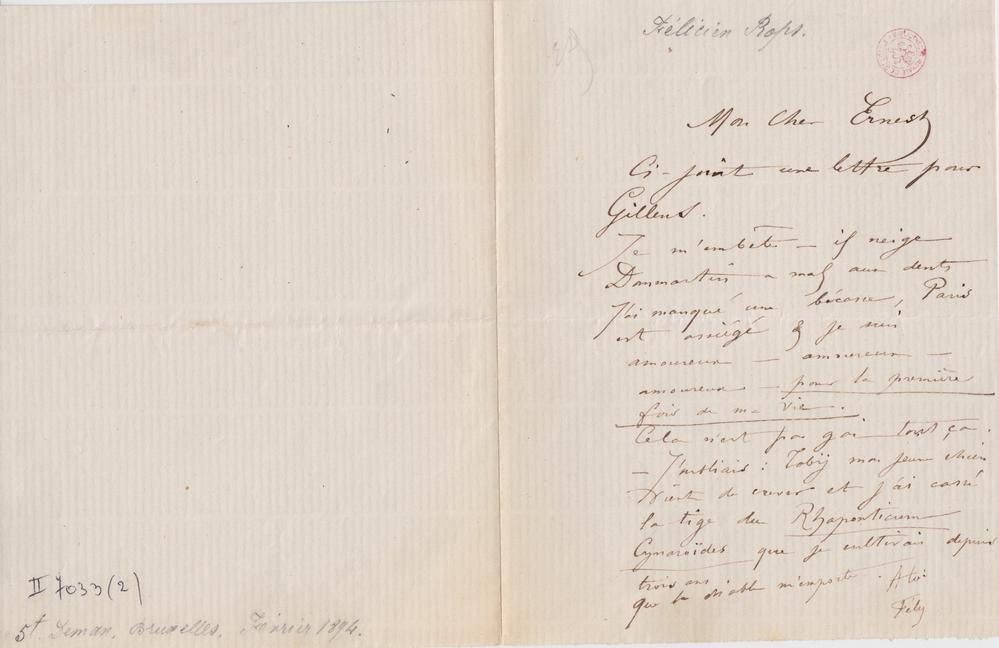 Félicien Rops.
Mon Cher Ernest
Ci-joint une lettre pour
Gillens.
Je m'embête — il neige
Danmartin a mal aux dents
J'ai manqué une bécasse, Paris
est assiégé & je suis
amoureux — amoureux —
amoureux — pour la première
fois de ma vie.
Cela n'est pas gai tout ça.
— J'oubliais : Toby mon jeune chien
vient de crever et j'ai cassé
la tige du Rhaponticum
Cynaroïdes que je cultivais depuis
trois ans
que le diable m'emporte. A toi
Fély
II 7033 (2)
5t. Deman, Bruxelles, Février 1894.